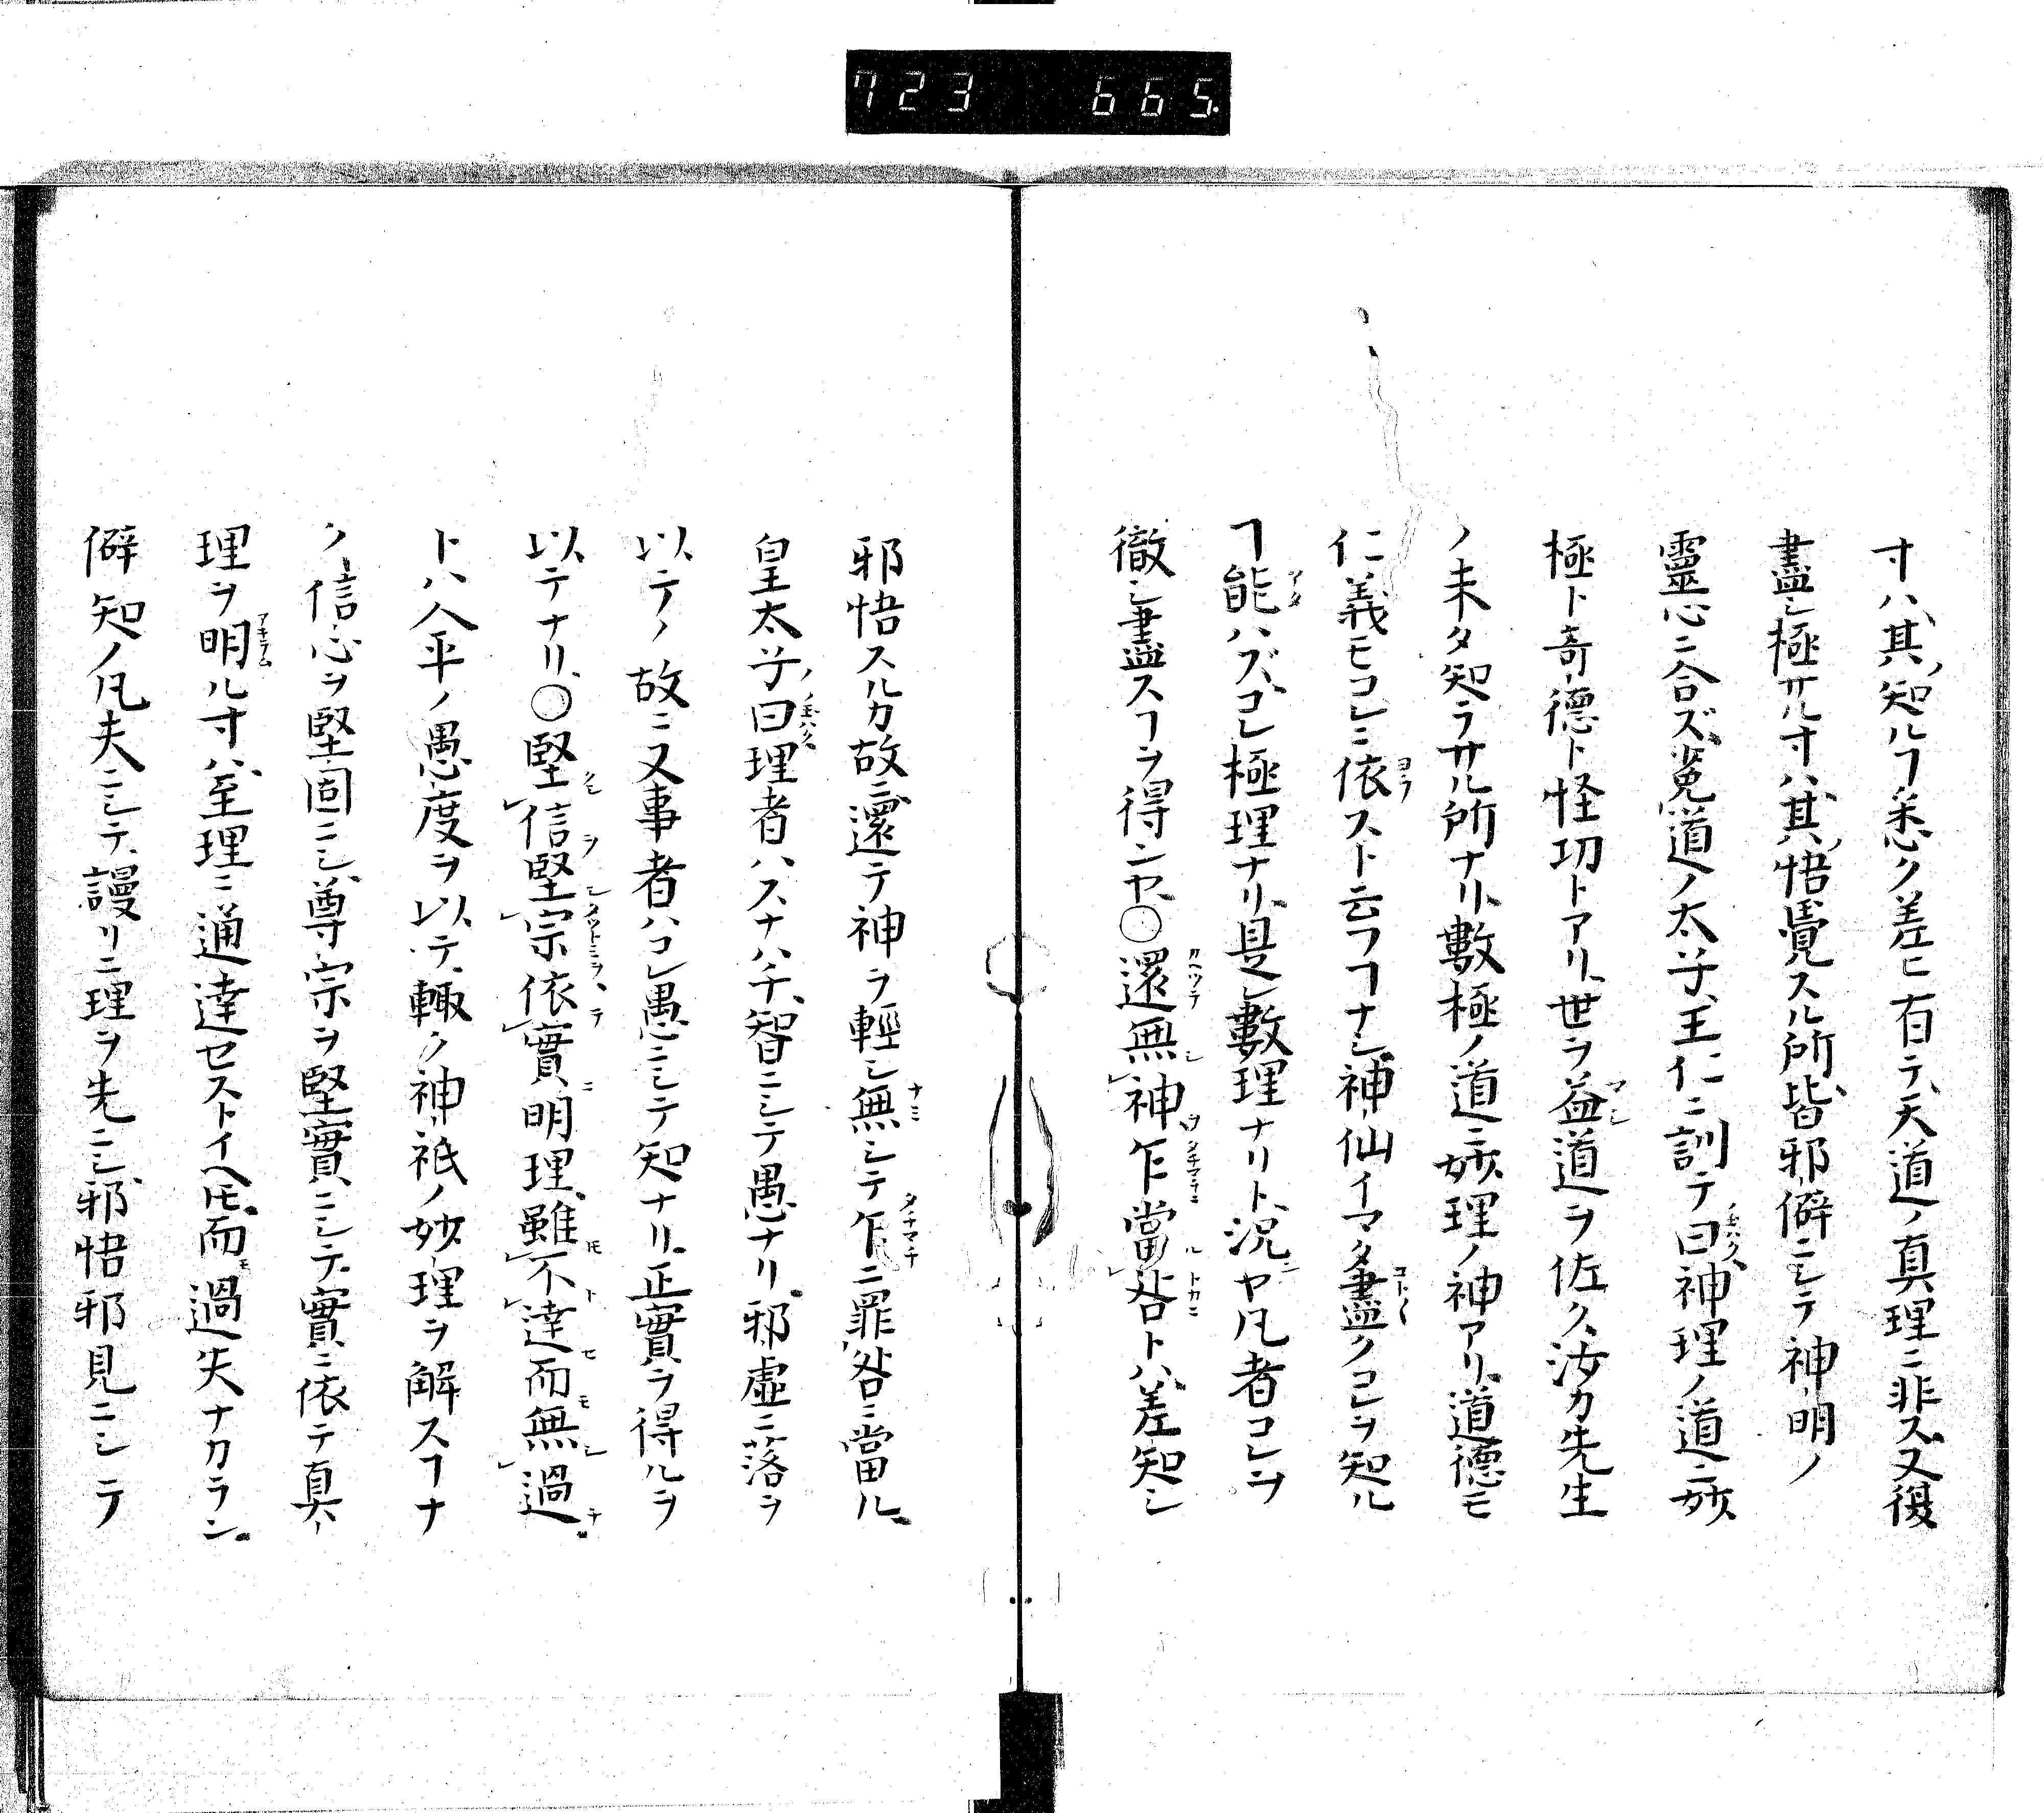 723 665.
寸ハ其ノ知ルヿ悉ク差ヒ有テ天道ノ真理ニ非ス又復
盡シ極サル寸ハ其ノ悟覺スル所皆邪僻ニシテ神明ノ
靈心ニ合ズ菟道ノ太子王仁ニ訓テ曰神理ノ道ニ妙
極ト奇德ト怪功トアリ世ヲ益道ヲ佐ク汝カ先生
ノ未タ知ラサル所ナリ數極ノ道ニ妙理ノ神アリ道德モ
仁義モコレニ依スト云フヿナシ神仙イマタ盡クコレヲ知ル
ヿ能ハズコレ極理ナリ是レ數理ナリト況ヤ凡者コレヲ
徹シ盡スヿヲ得ンヤ○還無神乍當咎トハ差知シ
邪悟スルカ故ニ還テ神ヲ輕シ無シテ乍ニ罪咎ニ當ル
皇太子ノ曰理者ハスナハチ智ニシテ愚ナリ邪虛ニ落ヲ
以テノ故ニ又事者ハコレ愚ニシテ知ナリ正實ヲ得ルヲ
以テナリ○堅信堅宗依實明理雖不達而無過
トハ人平ノ愚度ヲ以テ輙ク神祇ノ妙理ヲ解スヿナ
ク信心ヲ堅固ニシ尊宗ヲ堅實ニシテ實ニ依テ真ノ
理ヲ明ル寸ハ至理ニ通達セストイヘ𪜈而過失ナカラン
僻知ノ凡夫ニシテ謾リニ理ヲ先ニシ邪悟邪見ニシテ